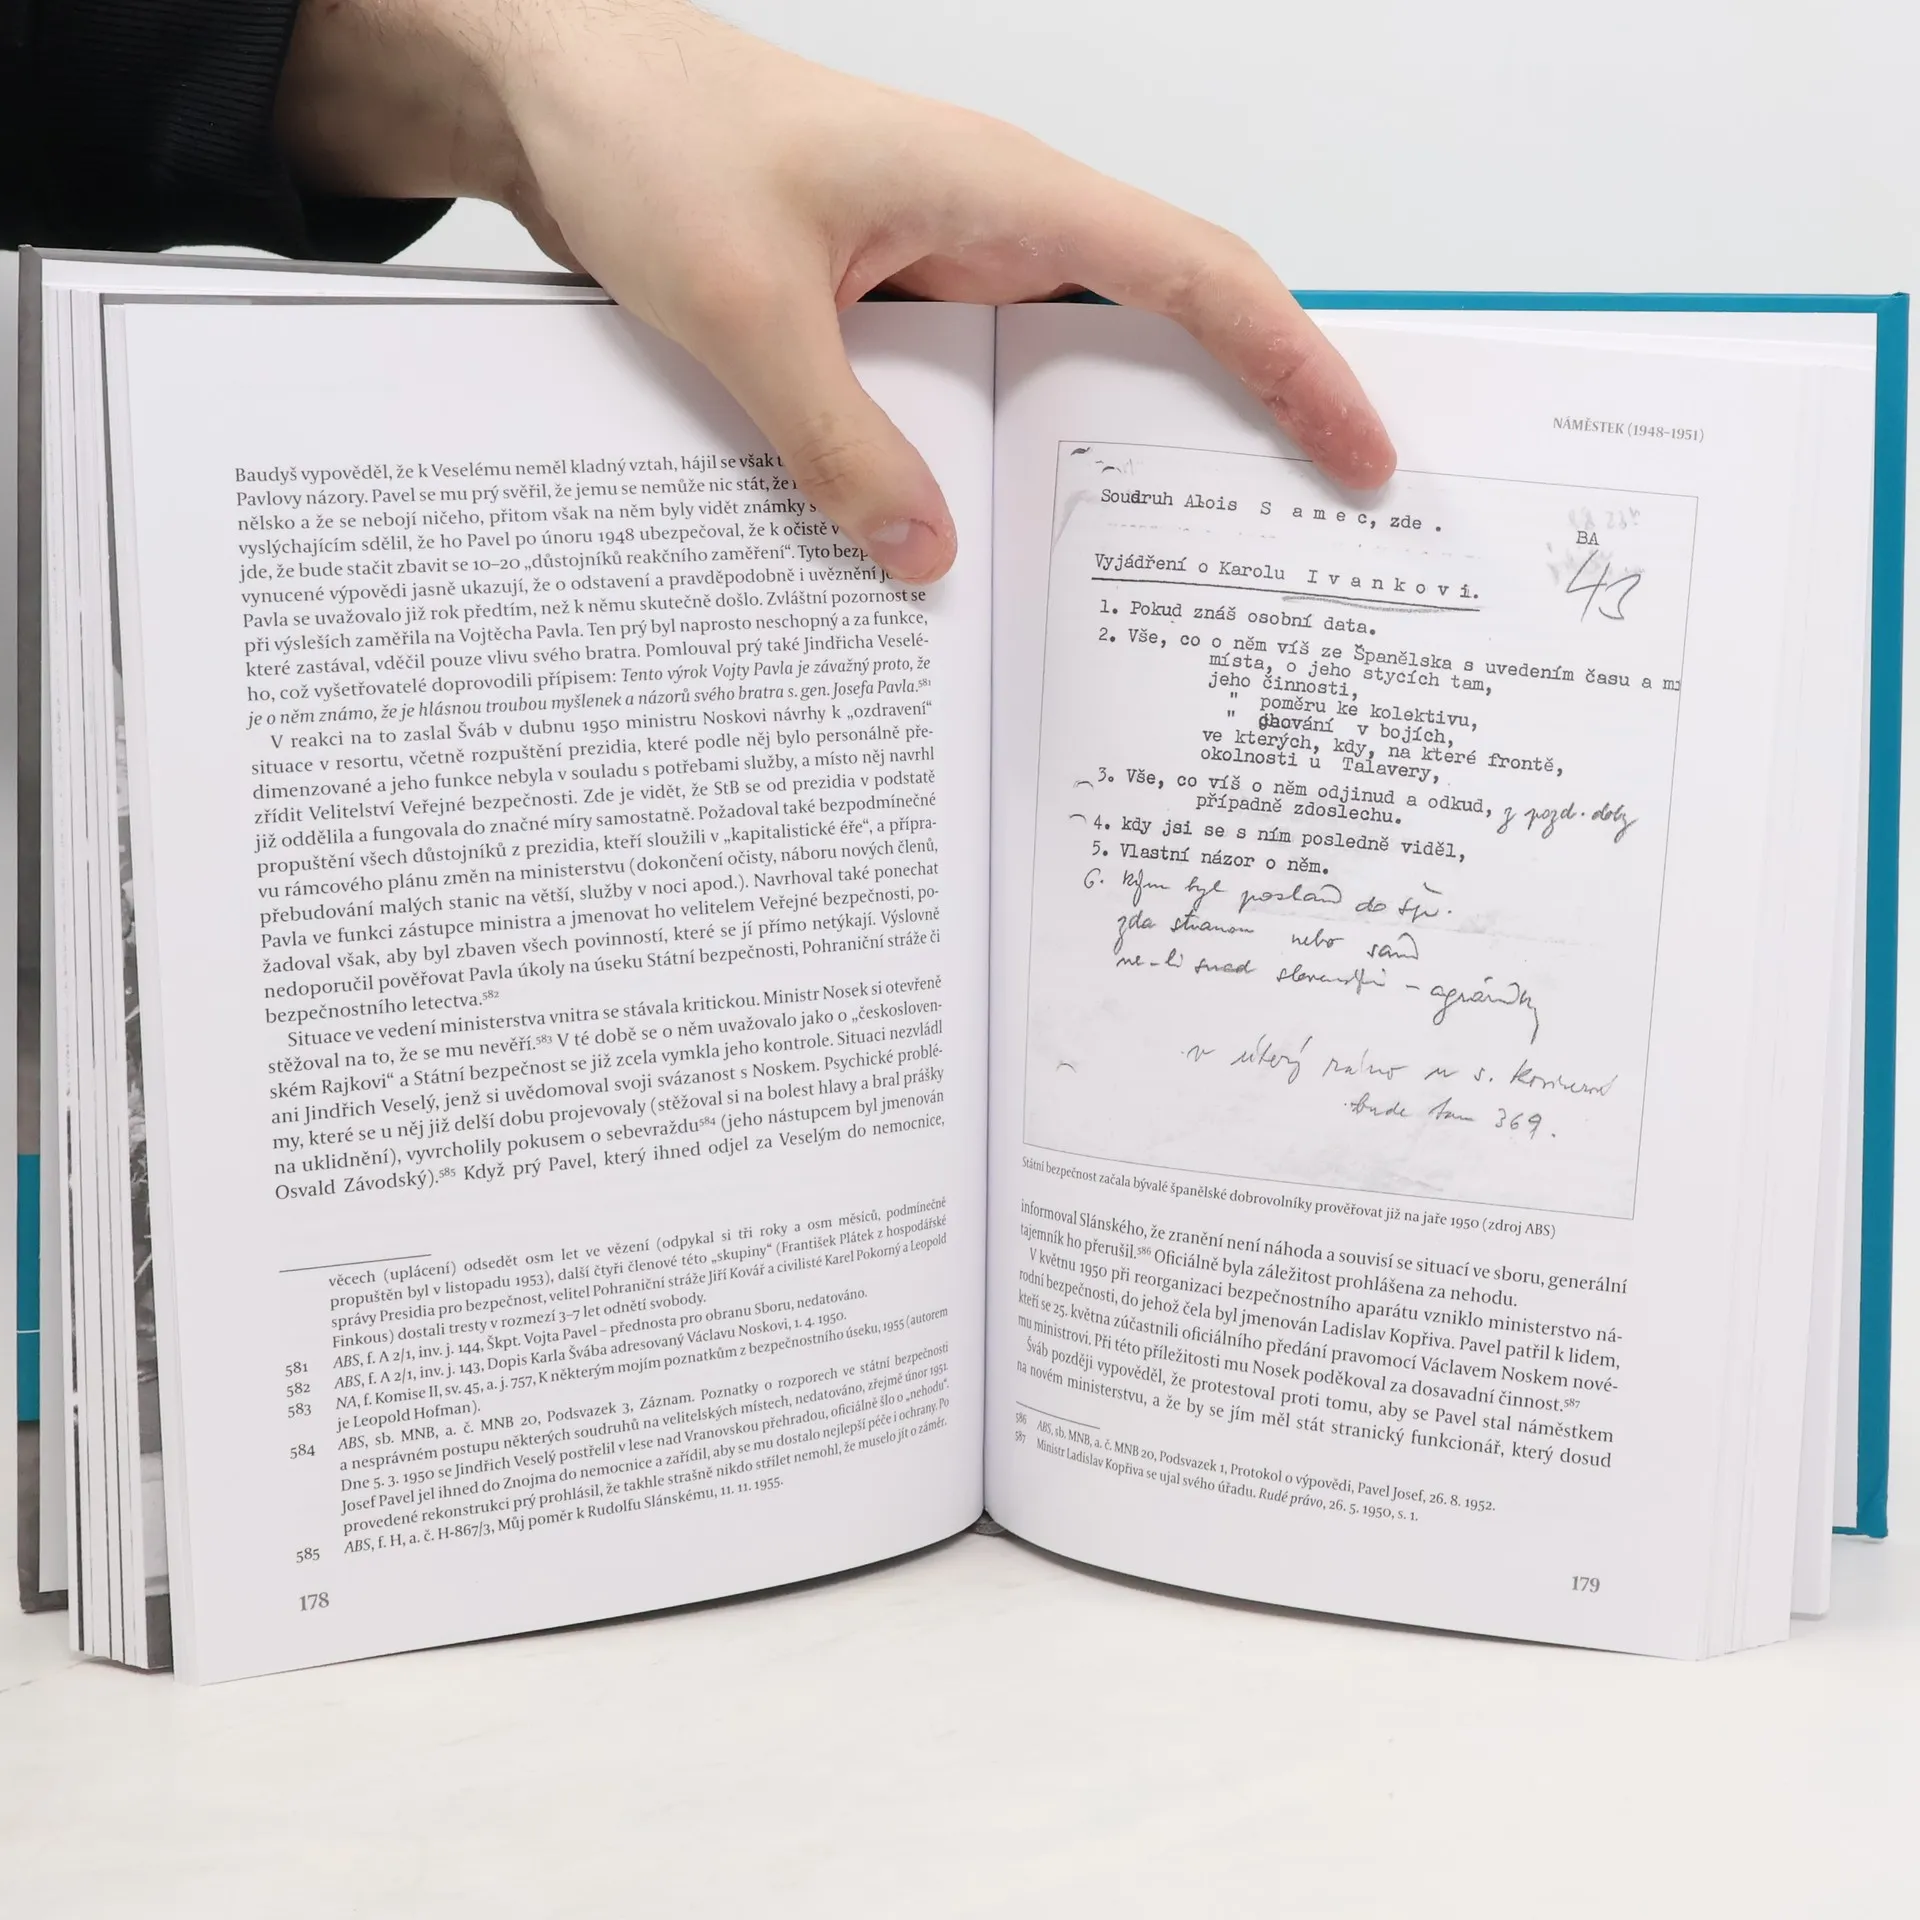 Baudyš vypověděl, že k Veselému neměl kladný vztah, hájil se však
Pavlovy názory. Pavel se mu prý svěřil, že jemu se nemůže nic stát, že
nělsko a že se nebojí ničeho, přitom však na něm byly vidět známky
vyslýchajícím sdělil, že ho Pavel po únoru 1948 ubezpečoval, že k očistě
jde, že bude stačit zbavit se 10–20 „důstojníků reakčního zaměření“. Tyto
vynucené výpovědi jasně ukazují, že o odstavení a pravděpodobně i uvěznění
Pavla se uvažovalo již rok předtím, než k němu skutečně došlo. Zvláštní pozornost se
při výsleších zaměřila na Vojtěcha Pavla. Ten prý byl naprosto neschopný a za funkce,
které zastával, vděčil pouze vlivu svého bratra. Pomlouval prý také Jindřicha Veselé-
ho, což vyšetřovatelé doprovodili přípisem: Tento výrok Vojty Pavla je závažný proto, že
je o něm známo, že je hlásnou troubou myšlenek a názorů svého bratra s. gen. Josefa Pavla.581
V reakci na to zaslal Šváb v dubnu 1950 ministru Noskovi návrhy k „ozdravení“
situace v resortu, včetně rozpuštění prezidia, které podle něj bylo personálně pře-
dimenzované a jeho funkce nebyla v souladu s potřebami služby, a místo něj navrhl
zřídit Velitelství Veřejné bezpečnosti. Zde je vidět, že StB se od prezidia v podstatě
již oddělila a fungovala do značné míry samostatně. Požadoval také bezpodmínečné
propuštění všech důstojníků z prezidia, kteří sloužili v „kapitalistické éře“, a přípra-
vu rámcového plánu změn na ministerstvu (dokončení očisty, náboru nových členů,
přebudování malých stanic na větší, služby v noci apod.). Navrhoval také ponechat
Pavla ve funkci zástupce ministra a jmenovat ho velitelem Veřejné bezpečnosti, po-
žadoval však, aby byl zbaven všech povinností, které se jí přímo netýkají. Výslovně
nedoporučil pověřovat Pavla úkoly na úseku Státní bezpečnosti, Pohraniční stráže či
bezpečnostního letectva.582
Situace ve vedení ministerstva vnitra se stávala kritickou. Ministr Nosek si otevřeně
stěžoval na to, že se mu nevěří.583 V té době se o něm uvažovalo jako o „českosloven-
ském Rajkovi“ a Státní bezpečnost se již zcela vymkla jeho kontrole. Situaci nezvládl
ani Jindřich Veselý, jenž si uvědomoval svoji svázanost s Noskem. Psychické problé-
my, které se u něj již delší dobu projevovaly (stěžoval si na bolest hlavy a bral prášky
na uklidnění), vyvrcholily pokusem o sebevraždu584 (jeho nástupcem byl jmenován
Osvald Závodský).585 Když prý Pavel, který ihned odjel za Veselým do nemocnice,
věcech (uplácení) odsedět osm let ve vězení (odpykal si tři roky a osm měsíců, podmínečně
propuštěn byl v listopadu 1953), další čtyři členové této „skupiny“ (František Plátek z hospodářské
správy Presidia pro bezpečnost, velitel Pohraniční stráže Jiří Kovář a civilisté Karel Pokorný a Leopold
Finkous) dostali tresty v rozmezí 3–7 let odnětí svobody.
581 ABS, f. A 2/1, inv. j. 144, Škpt. Vojta Pavel – přednosta pro obranu Sboru, nedatováno.
582 ABS, f. A 2/1, inv. j. 143, Dopis Karla Švába adresovaný Václavu Noskovi, 1. 4. 1950.
583 NA, f. Komise II, sv. 45, a. j. 757, K některým mojím poznatkům z bezpečnostního úseku, 1955 (autorem
je Leopold Hofman).
584 ABS, sb. MNB, a. č. MNB 20, Podsvazek 3, Záznam. Poznatky o rozporech ve státní bezpečnosti
a nesprávném postupu některých soudruhů na velitelských místech, nedatováno, zřejmě únor 1951.
Dne 5. 3. 1950 se Jindřich Veselý postřelil v lese nad Vranovskou přehradou, oficiálně šlo o „nehodu“.
Josef Pavel jel ihned do Znojma do nemocnice a zařídil, aby se mu dostalo nejlepší péče i ochrany. Po
provedené rekonstrukci prý prohlásil, že takhle strašně nikdo střílet nemohl, že muselo jít o záměr.
585 ABS, f. H, a. č. H-867/3, Můj poměr k Rudolfu Slánskému, 11. 11. 1955.
178
NÁMĚSTEK (1948–1951)
Soudruh Alois S a m e c, zde .
BA
43
Vyjádření o Karolu I v a n k o v i.
1. Pokud znáš osobní data.
2. Vše, co o něm víš ze Španělska s uvedením času a
místa, o jeho stycích tam,
jeho činnosti,
" poměru ke kolektivu,
" chování v bojích,
ve kterých, kdy, na které frontě,
okolnosti u Talavery,
3. Vše, co víš o něm odjinud a odkud, z pozd. doby
případně zdoslechu.
4. kdy jsi se s ním posledně viděl,
5. Vlastní názor o něm.
6. Kým byl poslán do Šp.
zda stranou nebo sám
ne-li snad slovenskými – agrárníky
v úterý ráno u s.
bude tam 369.
Státní bezpečnost začala bývalé španělské dobrovolníky prověřovat již na jaře 1950 (zdroj ABS)
informoval Slánského, že zranění není náhoda a souvisí se situací ve sboru, generální
tajemník ho přerušil.586 Oficiálně byla záležitost prohlášena za nehodu.
V květnu 1950 při reorganizaci bezpečnostního aparátu vzniklo ministerstvo ná-
rodní bezpečnosti, do jehož čela byl jmenován Ladislav Kopřiva. Pavel patřil k lidem,
kteří se 25. května zúčastnili oficiálního předání pravomocí Václavem Noskem nové-
mu ministrovi. Při této příležitosti mu Nosek poděkoval za dosavadní činnost.587
Šváb později vypověděl, že protestoval proti tomu, aby se Pavel stal náměstkem
na novém ministerstvu, a že by se jím měl stát stranický funkcionář, který dosud
586 ABS, sb. MNB, a. č. MNB 20, Podsvazek 1, Protokol o výpovědi, Pavel Josef, 26. 8. 1952.
587 Ministr Ladislav Kopřiva se ujal svého úřadu. Rudé právo, 26. 5. 1950, s. 1.
179